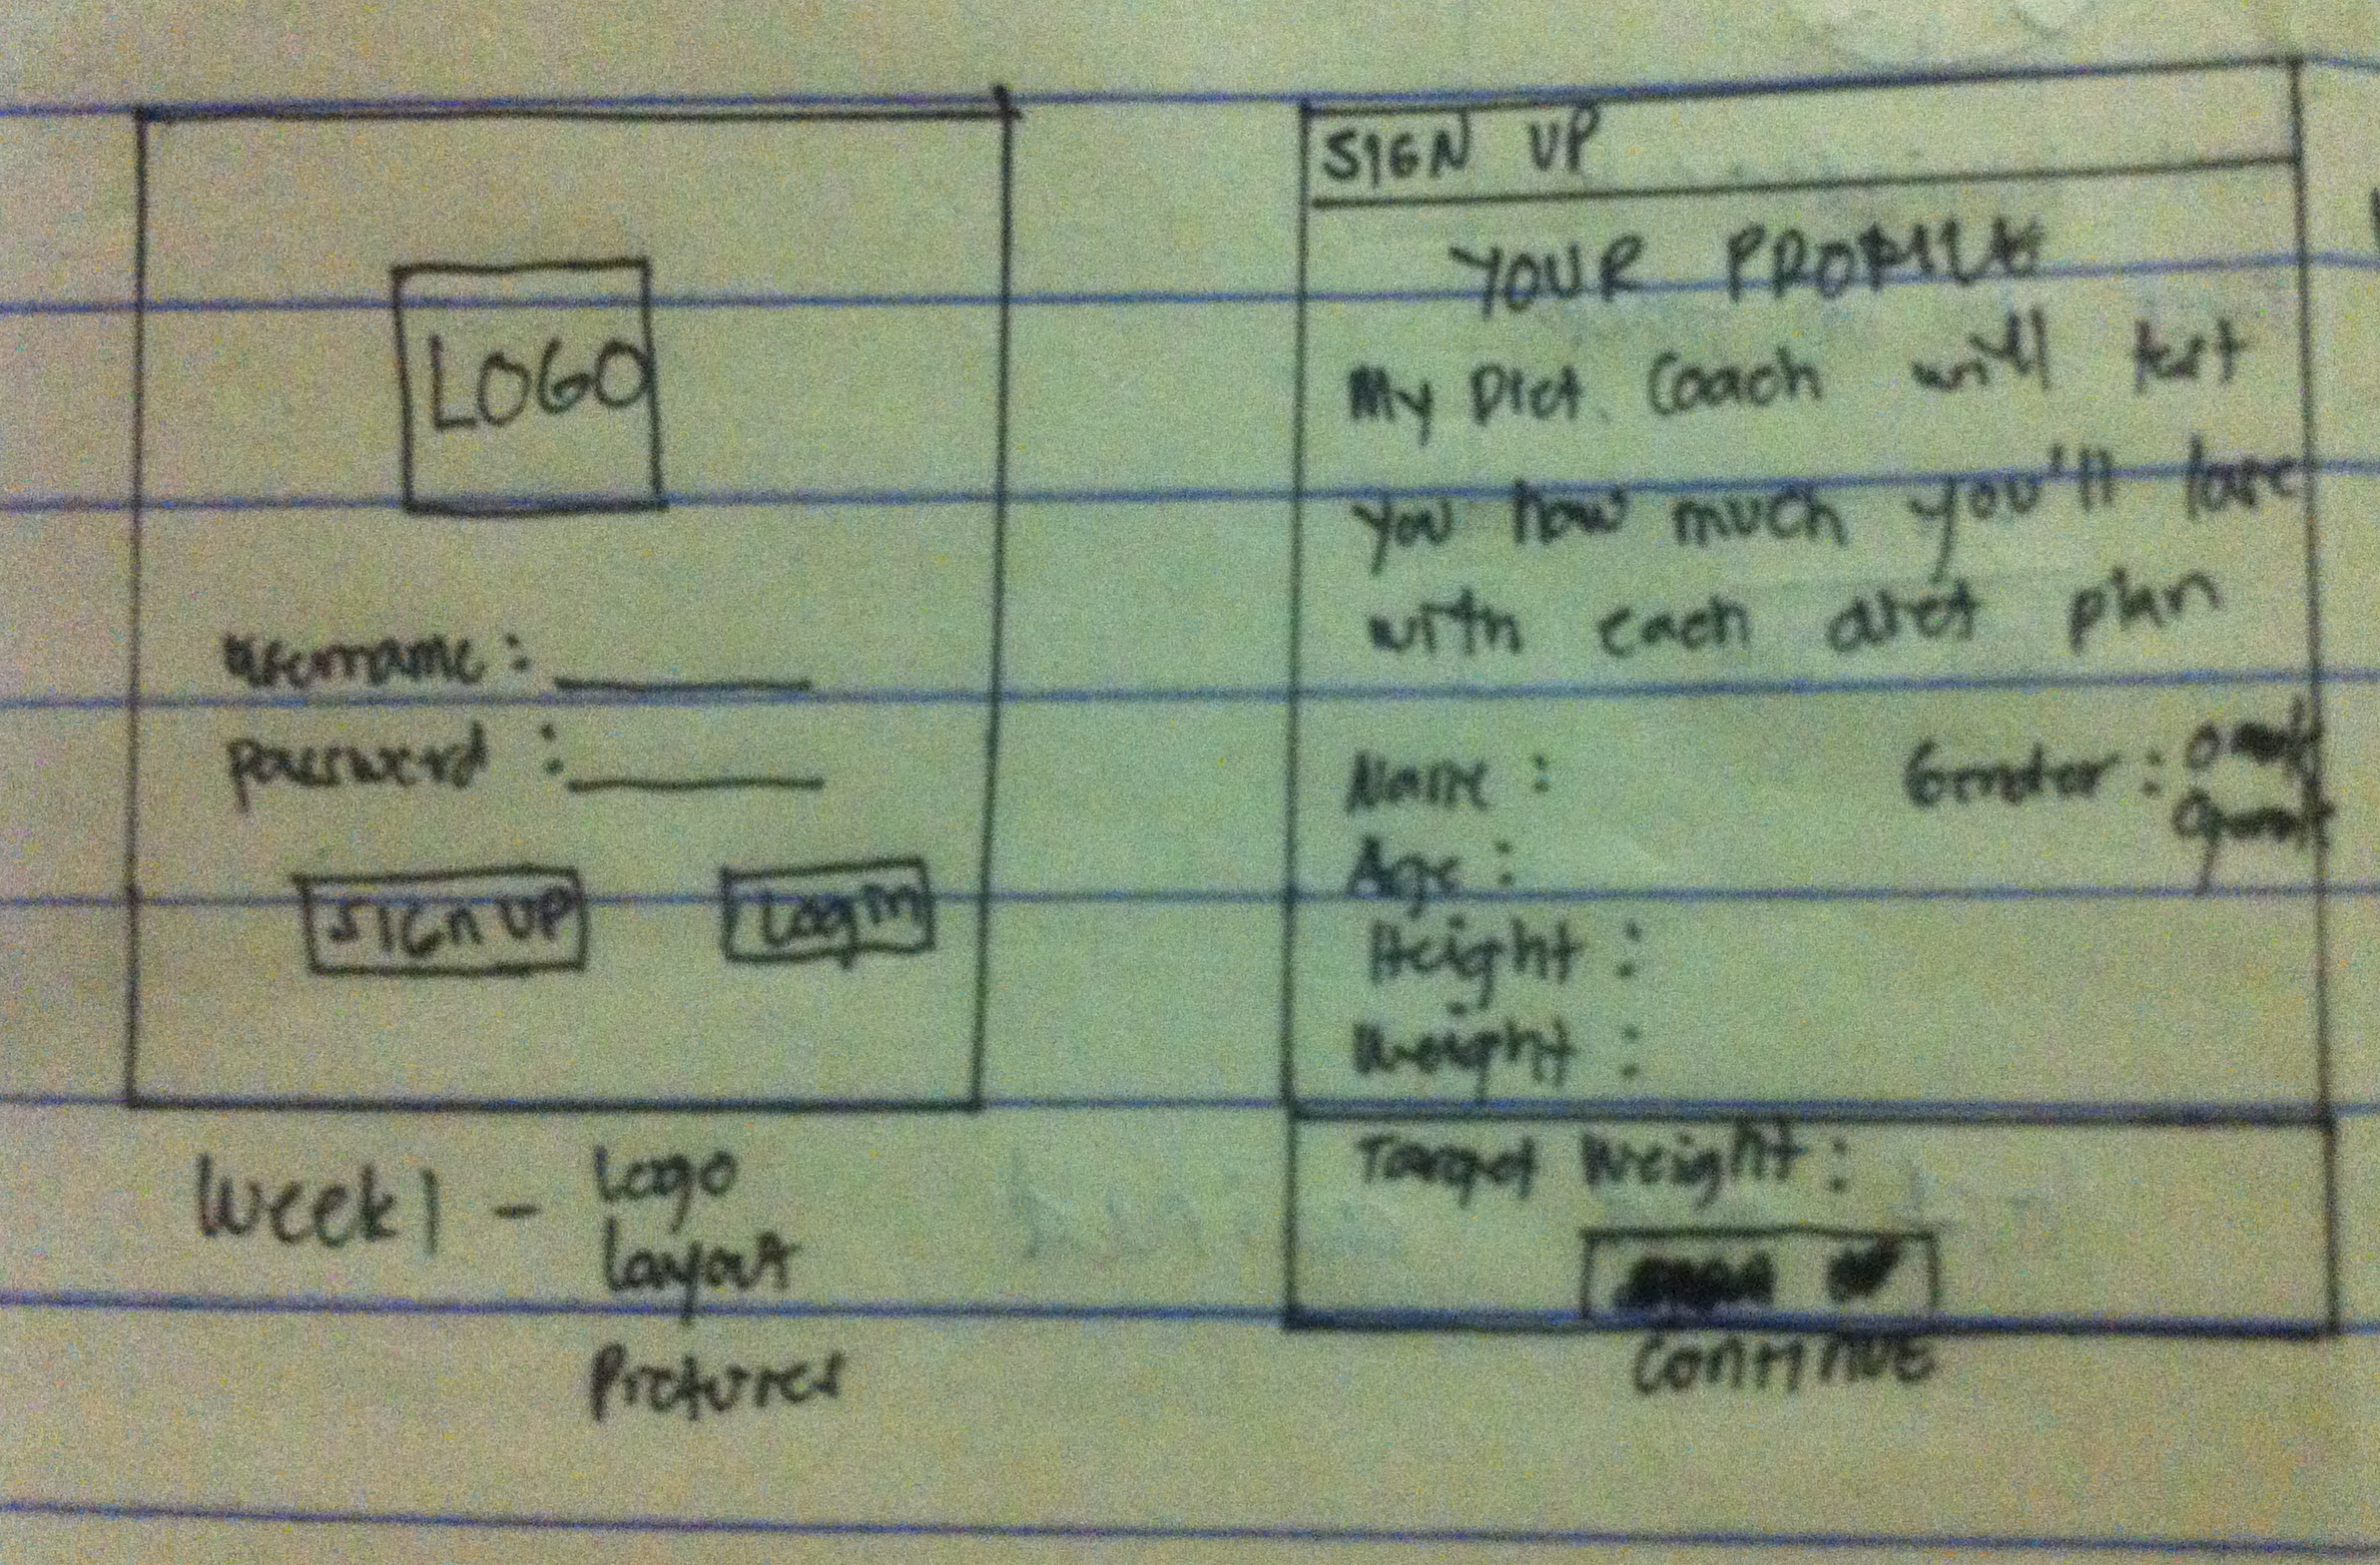 LOGO
Username :
password :
SIGN UP
Login
Week 1 - Logo
Layout
Pictures
SIGN UP
YOUR PROFILE
My Diet Coach will test
you how much you'll lose
with each diet plan
Name :
Gender :
Age :
Height :
Weight :
Target Weight :
CONTINUE